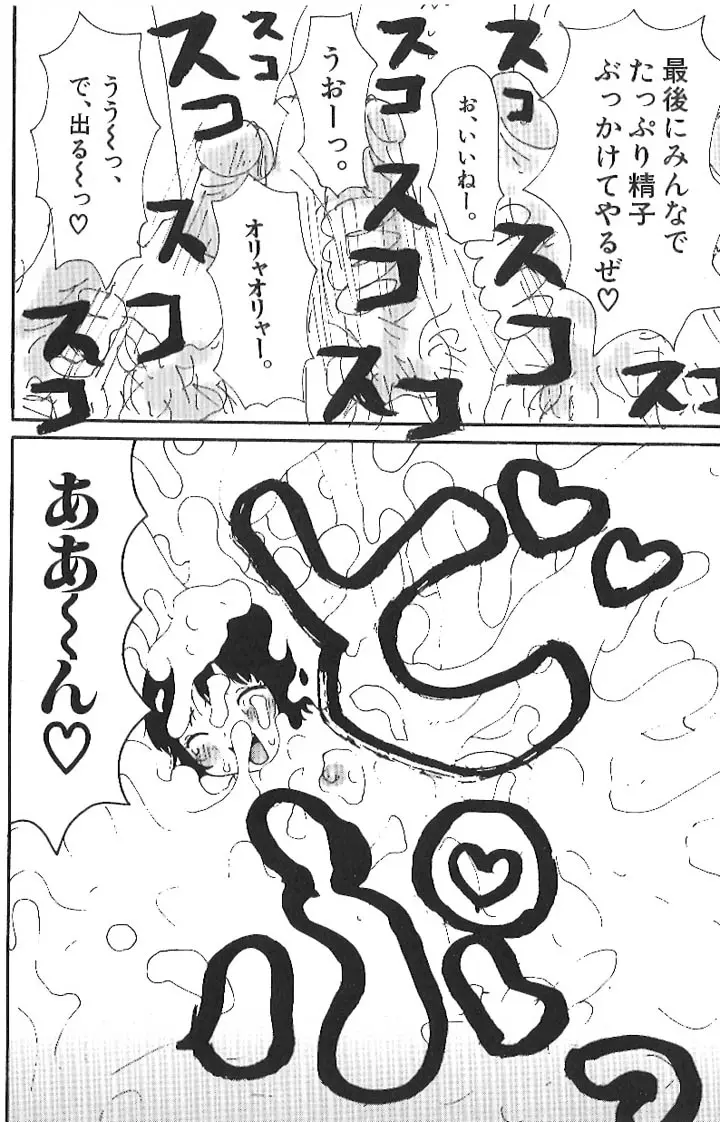 最後にみんなで
たっぷり精子
ぶっかけてやるぜ♡
お、いいねー。
うおーっ。
オリャオリャー。
うう〜っ、
で、出る〜っ♡
スコ
スコ
スコ
スコ
スコ
スコ
スコ
スコ
スコ
スコ
ああ〜ん♡
どぷっ